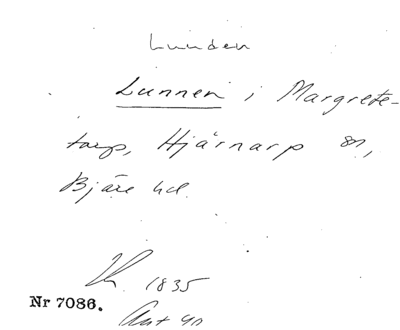 Lunden
Lunnen i Margrete-
torp, Hjärnarp sn,
Bjäre hd.
1835
Nr 7086.